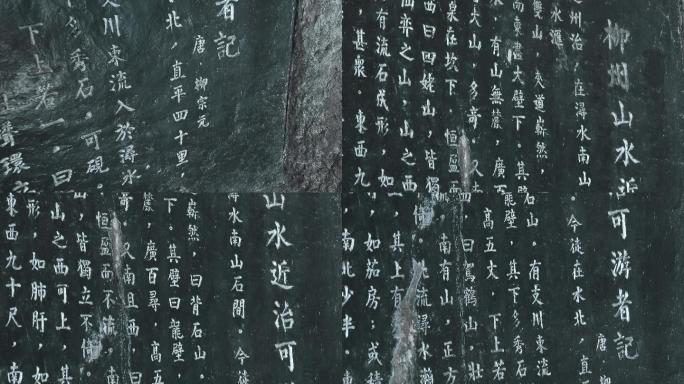 者記
唐·柳宗元
水北，直平四十里
支川東流入於潯水
多秀石。可硯。
下上若一。曰
環
柳州山水近
州治，在潯水南山
水滙
雙山，夾道嶄然，
南東盡大壁下。其
有山無麓，廣百
大山，多奇。又
泉在坎下。恒盈
西曰四姥山，皆獨
仙弈之山，山之西
有流石成形，
甚衆。東西九
山水近治可
潯水南山石間。今徒
嶄然，曰背石山。
下。其壁曰龍壁
麓，廣百尋，高五
又南且西曰
恒盈而不流，南
皆獨立不倚
山之西可上，其
形，如肺肝，如
東西九十尺，南
可游者記
唐 柳
今徒在水北，直
石山。有支川東流
龍壁，其下多秀石
高五丈，下上若
曰駕鶴山，壯
南有山，正方
倚。北流潯水瀨
其上有
如茄房；或積
南北少半。